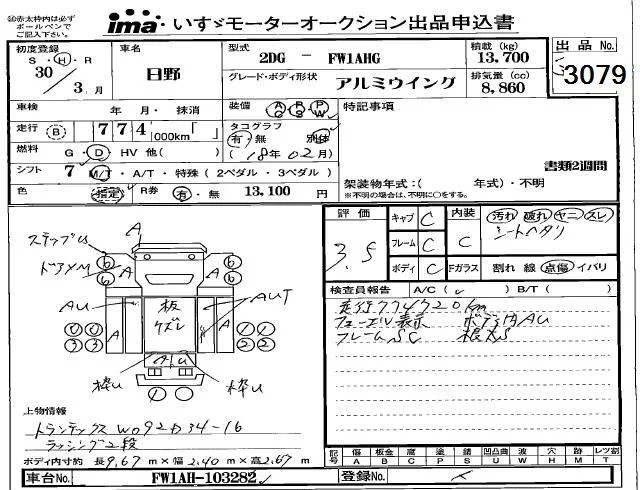 ㊟赤太枠内は必ず
ボールペンで
ご記入下さい。
ima いすゞモーターオークション出品申込書
初度登録
S・H・R
30 / 3 月
車名
日野
型式
2DG － FW1AHG
積載 (kg)
13,700
出品No.
3079
グレード・ボディ形状
アルミウイング
排気量 (cc)
8,860
車検 年 月・抹消
装備 A R P
G S W
特記事項
走行 B 7 7 4 000km「 」
タコグラフ
有・無 別体
(18年02月)
燃料 G・D HV 他( )
シフト 7 M/T・A/T・特殊 (2ペダル・3ペダル)
書類2週間
架装物年式:( 年式)・不明
※不明の場合は、不明に○をする。
色 指定 R券 有・無 13,100 円
評価
3.5
キャブ C
フレーム C
ボディ C
内装 C
汚れ 破れ ヤニ スレ
シートヘタリ
Fガラス 割れ 線 点傷 イバリ
検査員報告 A/C( ✓ ) B/T( )
走行774720km
フューエル表示 ボディ内AU
フレームSC 根太S
ステップU
ドアYM
A
6 6
6 6
A A
AU
AUT
板
ケズレ
A
A U
枠U
枠U
上物情報
トランテックス W092D34-16
ラッシング2段
ボディ内寸約 長9.67m×幅2.40m×高2.67m
記号 傷 A 板金 B 腐 C 穴 P 塗 T 錆 S 凹凸曲 U 波 W 穴 H 木 M 汚 T レツ割
車台No. FW1AH-103282
登録No.